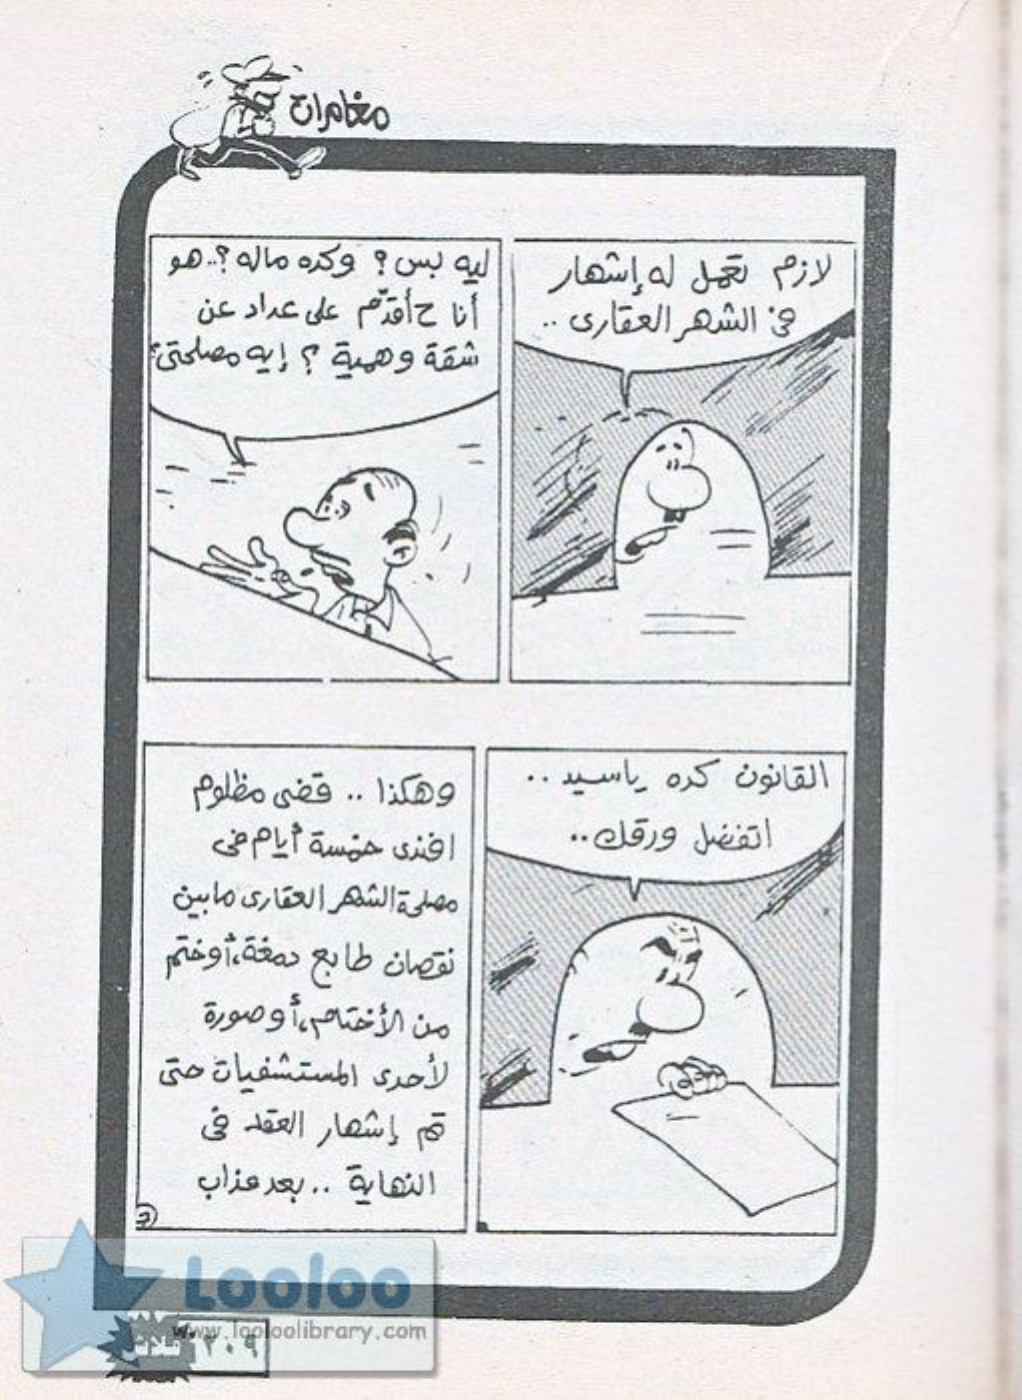 مغامرات
لازم تعمل له إشهار
فى الشهر العقارى ..
ليه بس ؟ وكده ماله ؟.. هو
أنا ح أقدّم على عداد عن
شقة وهمية ؟ إيه مصلحتى ؟
القانون كده ياسيد ..
اتفضل ورقك ..
وهكذا .. قضى مظلوم
افندى خمسة أيام فى
مصلحة الشهر العقارى مابين
نقصان طابع دمغة، أوختم
من الأختام، أو صورة
لأحدى المستشفيات حتى
تم إشهار العقد فى
النهاية .. بعد عذاب
Looloo
www.looloolibrary.com
فلاش
٢٠٩